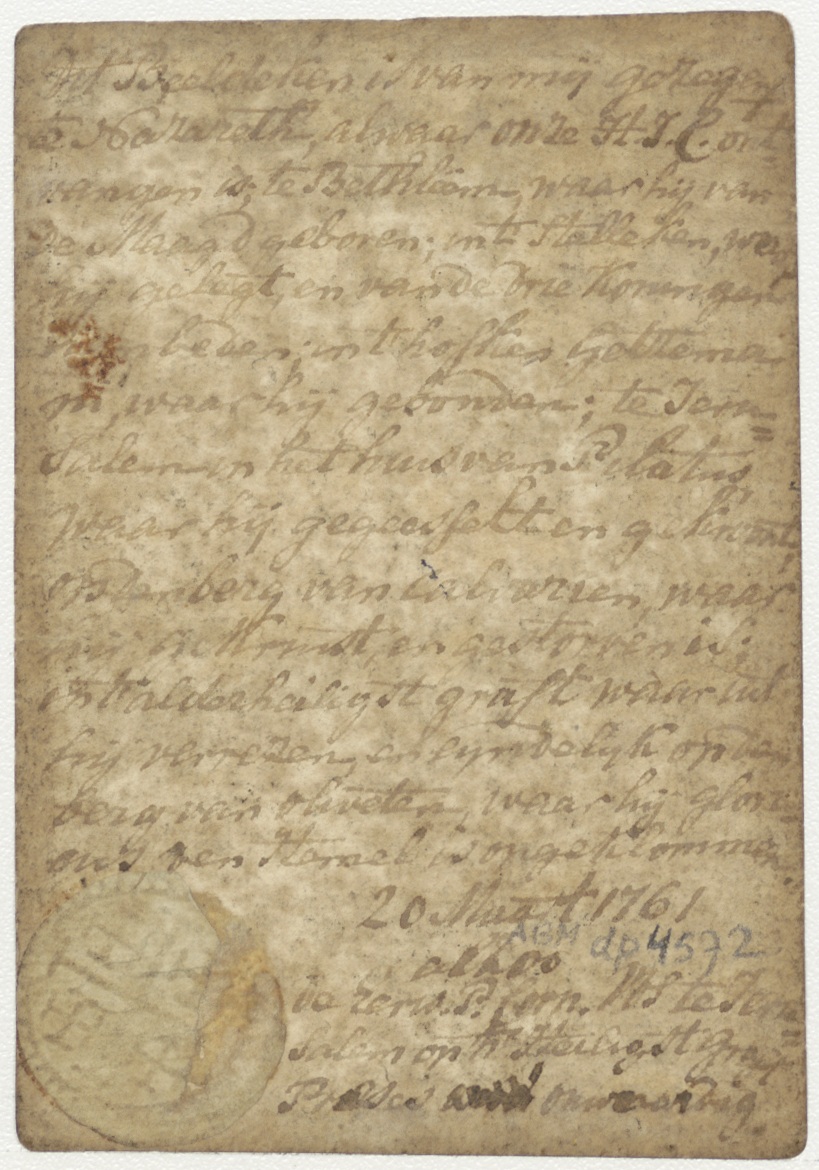 Dit Beeldeken is van mij gezegen
te Nazareth, alwaar onze H. J. C. ont=
vangen is; te Bethleem, waar hij van
de Maegd geboren; int Stalleken, waer
hij gelegt, en van de Drie Koningen
int hofken Gettema
ni, waar hij gebonden; te Jeru=
salem in het huis van Pilatus,
waar hij gegeesselt en gekroont,
op den berg van Calvarien, waar
hij gekruist, en gestorven is;
op t'alderheiligst graft waar uit
hij verrezen, en eyndelyk op den
berg van oliveten, waar hij glori=
eus, ten Hemel is opgeklommen.
20 Maart 1761
ABM dp 4572
de Jeru=
salem op 't Heiligst Graf
Preses onwaardig